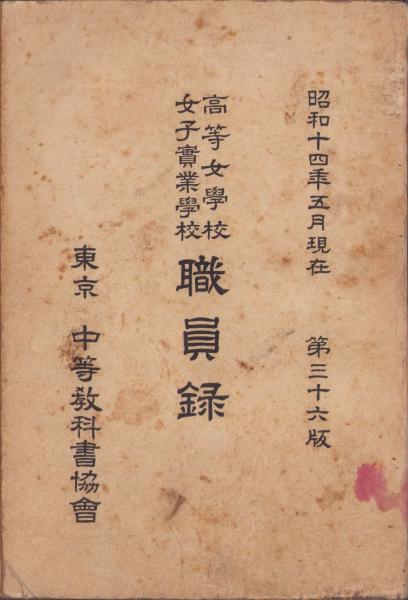 昭和十四年五月現在 第三十六版
高等女學校
女子實業學校
職員録
東京 中等教科書協會